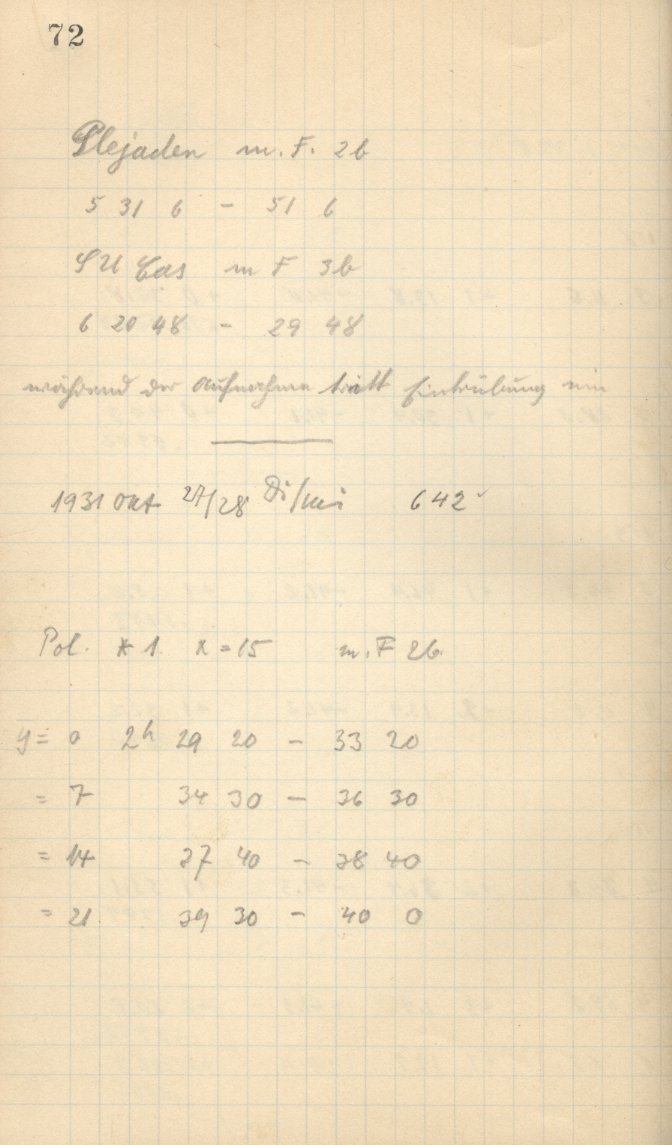 72
Plejaden m. F. 2b
5 31 6 - 51 6
SU Cas m F 3b
6 20 48 - 29 48
während der Aufnahme tritt Eintrübung ein
1931 Okt 27/28 Di/Mi 642
Pol. * 1. x = 15 m. F 2b.
y = 0 2h 29 20 - 33 20
= 7 34 30 - 36 30
= 14 37 40 - 38 40
= 21 39 30 - 40 0